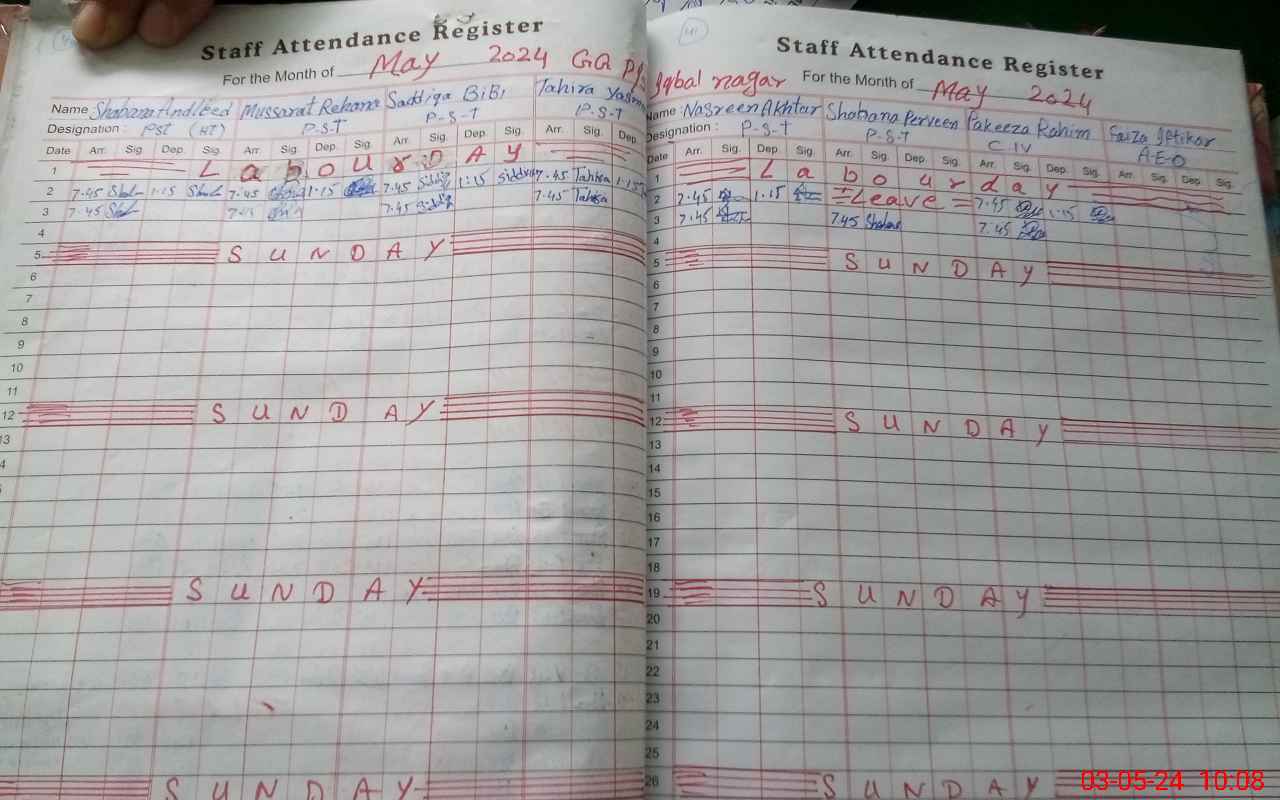 Staff Attendance Register
For the Month of May 2024 GG PS
Name Shabana Andleed Mussarat Rehana Saddiqa BiBi Tahira Yasm
Designation : PST (HT) P-S-T P-S-T P-S-T
Date Arr. Sig. Dep. Sig. Arr. Sig. Dep. Sig. Arr. Sig. Dep. Sig. Arr. Sig. Dep.
1 Labour DAY
2 7.45 1.15 7.45 1:15 7.45 1:15 7.45 Tahira 1.15
3 7.45 7.45 7.45 7.45 Tahira
4
5 SUNDAY
6
7
8
9
10
11
12 SUNDAY
13
4
SUNDAY
SUNDAY
41
Staff Attendance Register
Iqbal nagar For the Month of May 2024
Name : Nasreen Akhtar Shabana Perveen Pakeeza Rahim Faiza Iftikar
Designation : P-S-T P-S-T C IV A-E-O
Date Arr. Sig. Dep. Sig. Arr. Sig. Dep. Sig. Arr. Sig. Dep. Sig. Arr. Sig. Dep. Sig.
1 Labour day
2 7.45 1.15 =Leave= 7.45 1.15
3 7.45 7.45 Shabana 7.45
4
5 SUNDAY
6
7
8
9
10
11
12 SUNDAY
13
14
15
16
17
18
19 SUNDAY
20
21
22
23
24
25
26 SUNDAY
03-05-24 10:08